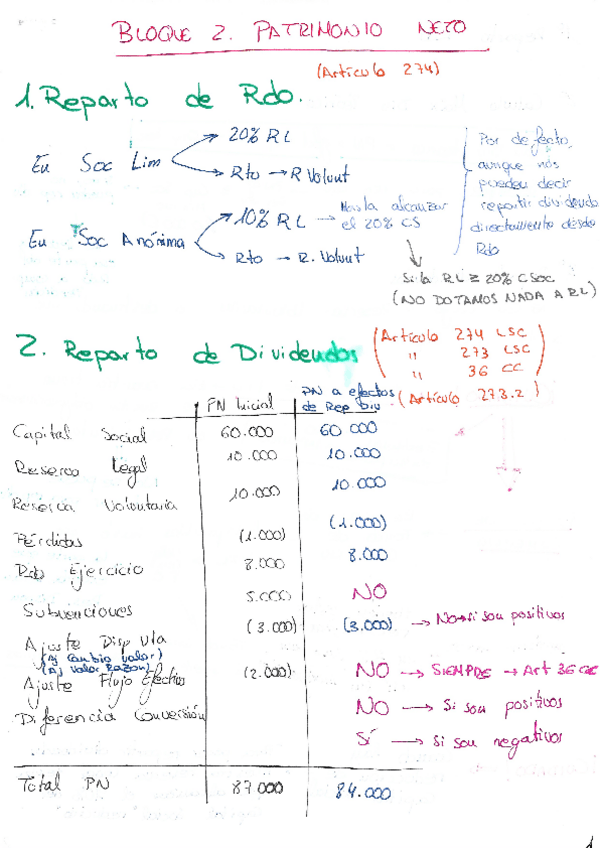 BLOQUE 2. PATRIMONIO NETO
(Artículo 274)
1. Reparto de Rdo.
En Soc Lim
20% RL
Rto → R Volunt
En Soc Anónima
10% RL → Hasta alcanzar
el 20% CS
Rto → R. Volunt
Si la RL ≥ 20% CSoc
(NO DOTAMOS NADA A RL)
Por defecto,
aunque nos
pueden decir
repartir dividendo
directamente desde
Rdo
2. Reparto de Dividendos
(Artículo 274 LSC
" 273 LSC
" 36 CC)
(Artículo 273.2)
PN Inicial
PN a efectos
de Rep Div
Capital Social 60.000 60 000
Reserva Legal 10.000 10.000
Reserva Voluntaria 10.000 10.000
Pérdidas (1.000) (1.000)
Rdo Ejercicio 8.000 8.000
Subvenciones 5.000 NO
Ajuste Disp Vta (3.000) (3.000) → No si son positivos
(Aj Cambio valor)
(Aj Valor Razon)
Ajuste Flujo Efectivo (2.000) NO → SIEMPRE → Art 36 CC
Diferencia Conversión NO → Si son positivos
Sí → Si son negativos
Total PN 87.000 84.000